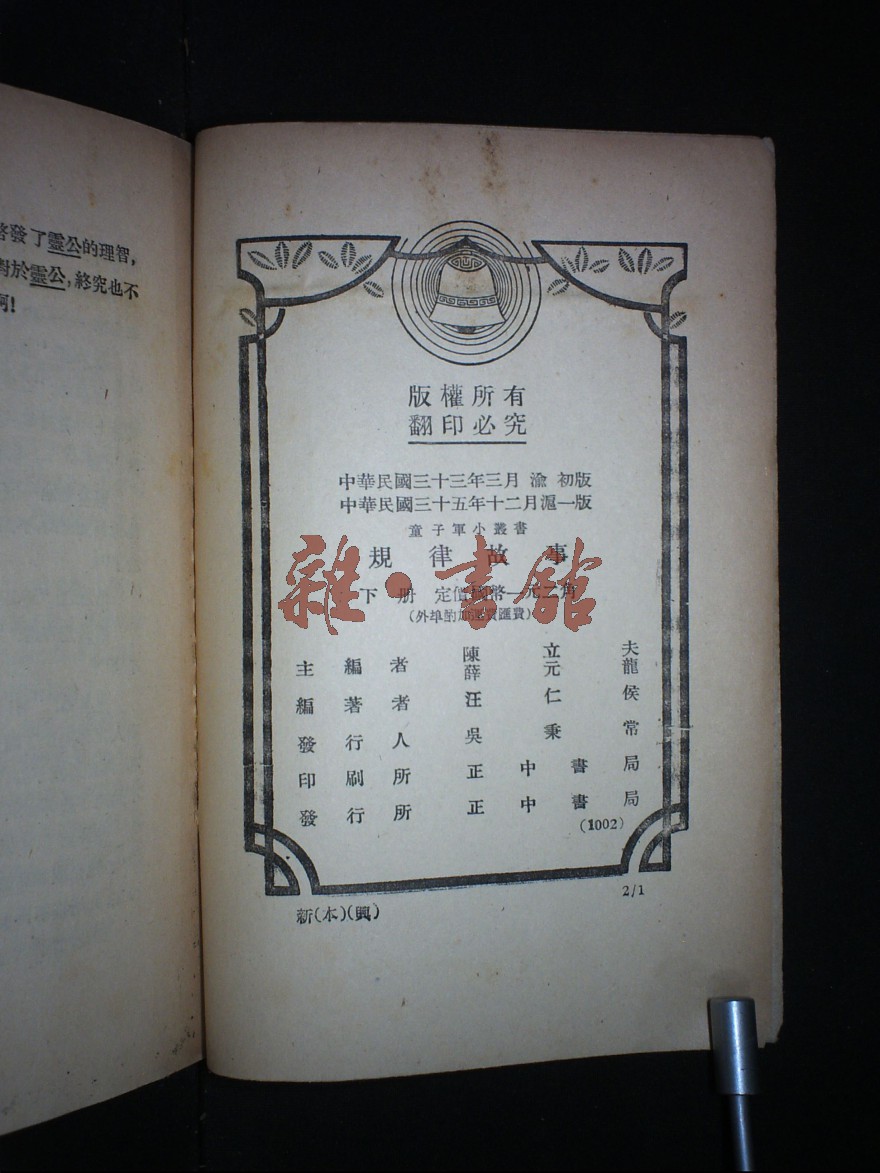 發了靈公的理智,
於靈公,終究也不
啊!
版權所有
翻印必究
中華民國三十三年三月 渝 初版
中華民國三十五年十二月滬一版
童子軍小叢書
規律故事
下册 定價國幣一元二角
(外埠酌加運費匯費)
主編者 陳立夫
薛元龍
編著者 汪仁侯
發行人 吳秉常
印刷所 正中書局
發行所 正中書局
(1002)
2/1
新(本)(興)
雜·書館